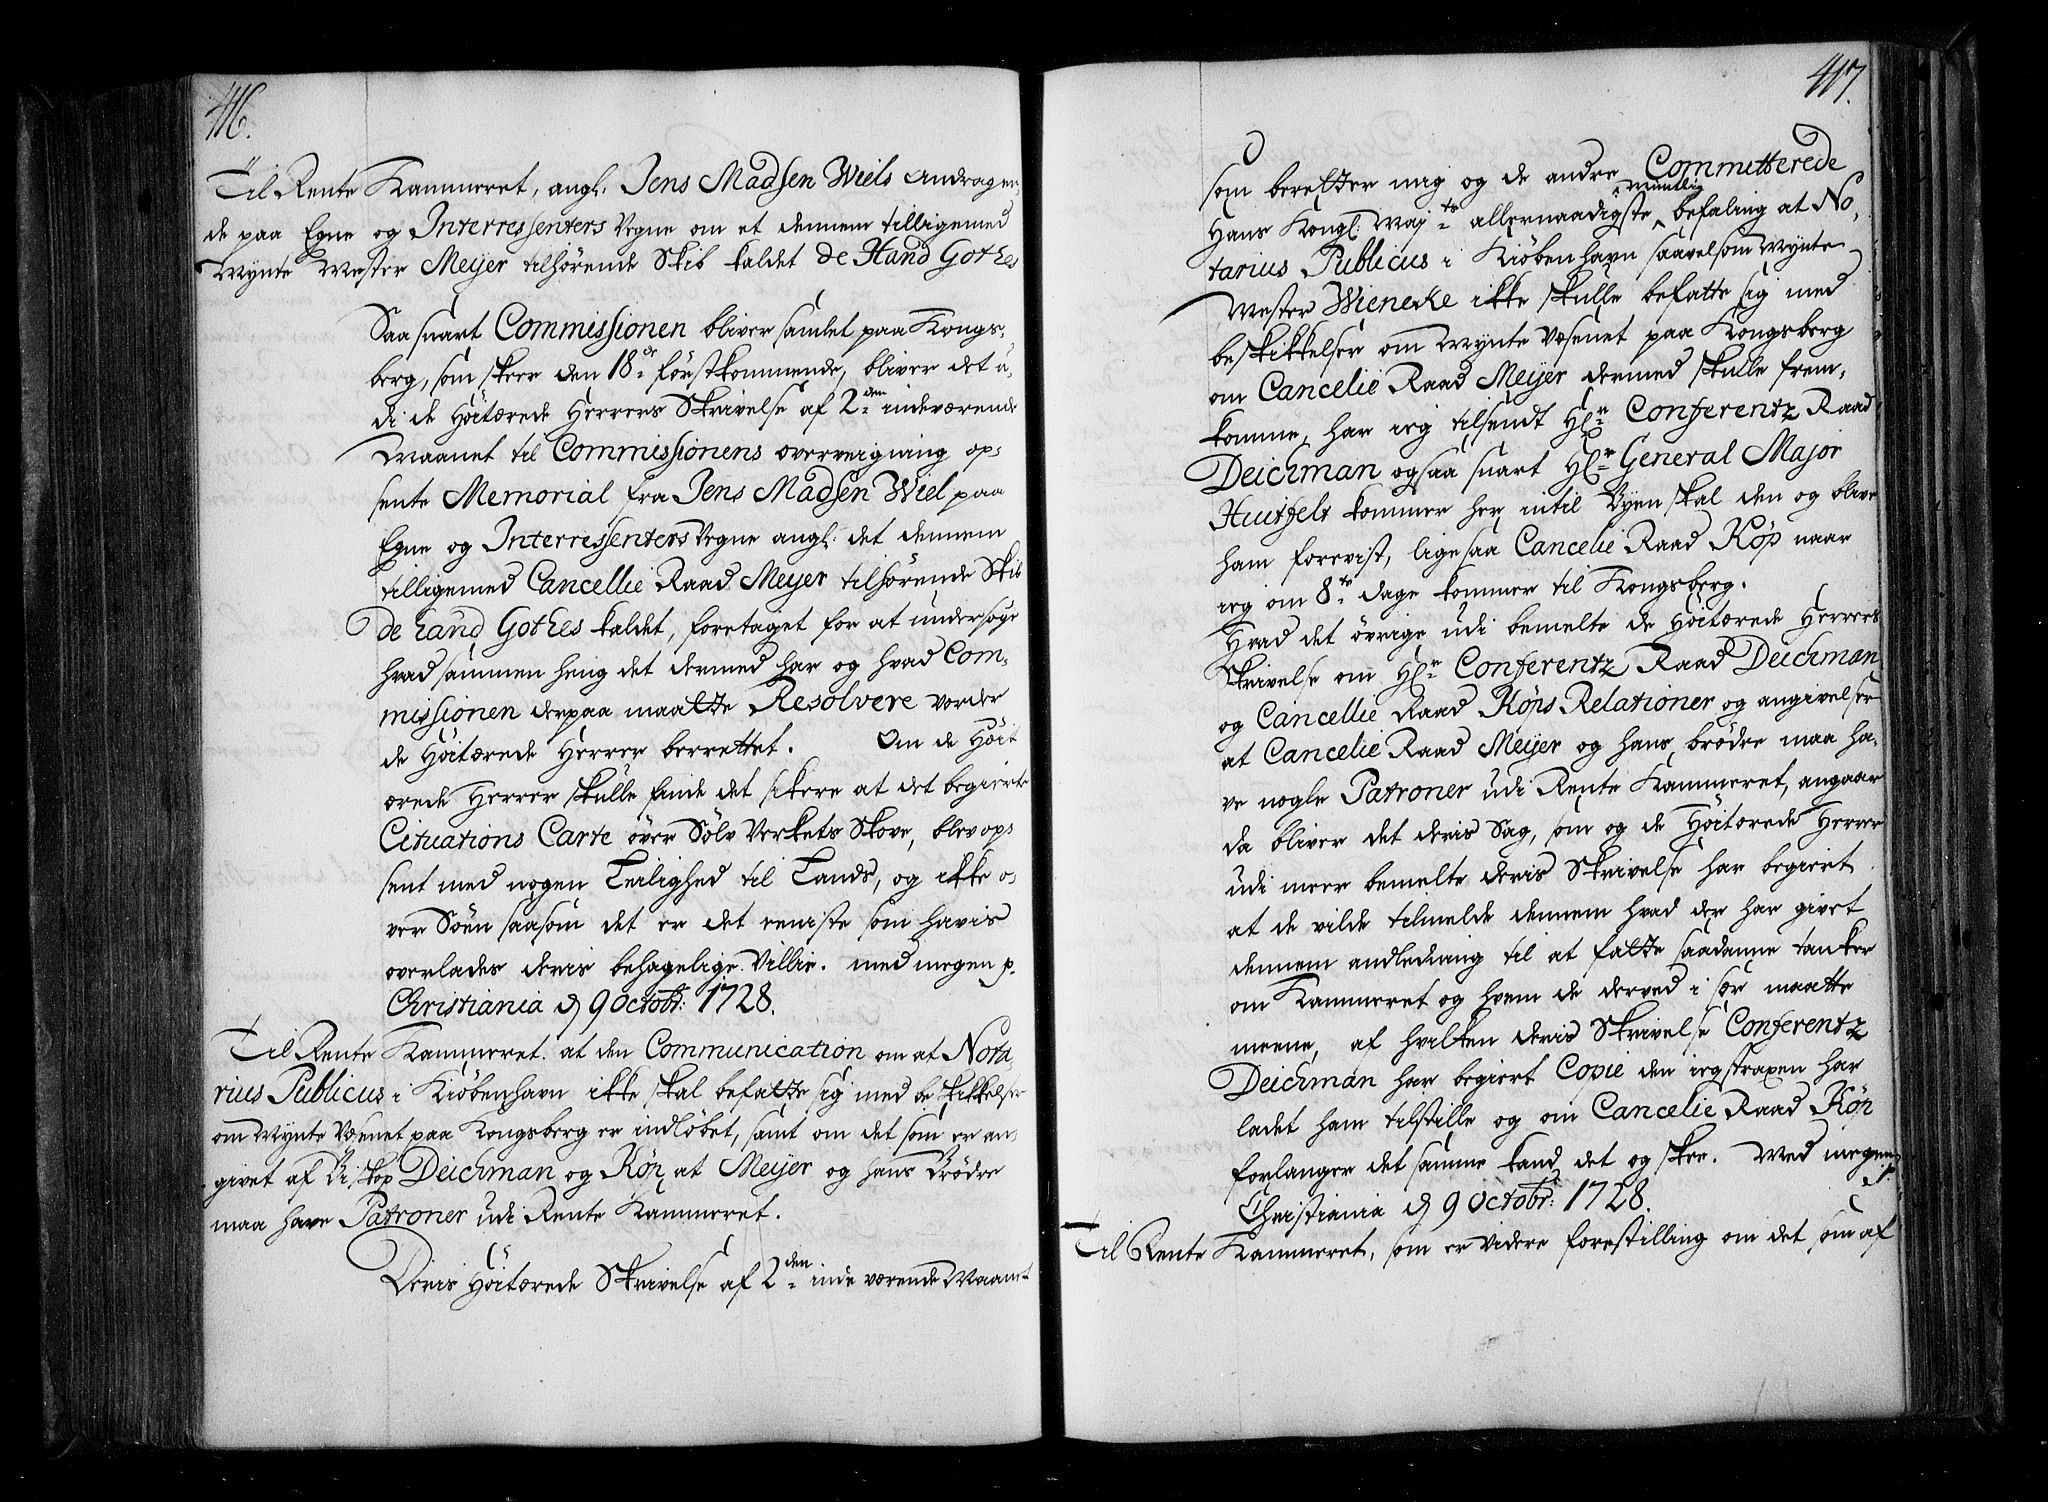 416.
Til Rente Kammeret, angl. Jens Madsen Wiels Andragen,
de paa Egne og Interressenters Vegne om et dennem tilligemed
Mynte Mester Meyer tilhörende Skib kaldet De Hand Gothes
Saa snart Commissionen bliver samlet paa Kongs,
berg, som skeer den 18de förstkommende, bliver det u,
di de Höitærede Herrers Skrivelse af 2den indeværende
Maanet til Commissionens overveigning op,
sente Memorial fra Jens Madsen Wiel paa
Egne og Interressenters Vegne angl: det dennem
tilligemed Cancellie Raad Meyer tilhörende Skib
De hand Gothes kaldet, foretaget for at undersöge
hvad sammen heng det dermed har og hvad Com,
missionen derpaa maatte Resolvere vorder
de Höitærede Herrer berrettet. Om de Höit
ærede Herrer skulle finde det sikere at det begierte
Cituations Carte över Sölv Verkets Skove, blev op,
sent med nogen Leilighed til Lands, og ikke o,
ver Söen saasom det er det eeniste som havis
overlades deris behagelige Villie. med megen p.
Christiania d 9 Octobr: 1728.
Til Rente Kammeret. at den Communication om at Nota,
rius Publicus i Kiöbenhavn ikke skal befatte sig med beskikkelser
om Mynte Væsenet paa Kongsberg er indlöbet, samt om det som er an,
givet af Biskop Deichman og Röp at Meyer og hans Brödre
maa have Patroner udi Rente Kammeret.
Deris Höitærede Skrivelse af 2den inde værende Maanet
417.
som beretter mig og de andre Committerede
Hans Kongl: Mayts allernaadigste mundtlig befaling at No,
tarius Publicus i Kiöbenhavn saavelsom Mynte
Mester Wienecke ikke skulle befatte sig med
beskikkelser om Mynte Væsenet paa Kongsberg
om Cancelie Raad Meyer dermed skulle frem,
komme, har ieg tilsendt Hr Conferentz Raad
Deichman ogsaa snart Hr General Major
Huitfelt kommer her intil Byen skal den og blive
ham forevist, lige saa Cancelie Raad Röp naar
ieg om 8te dage kommer til Kongsberg.
Hvad det övrige udi bemelte de Höitærede Herrers
Skrivelse om Hr Conferentz Raad Deichman
og Cancellie Raad Röps Relationer og angivelser
at Cancelie Raad Meyer og hans brödre maa ha,
ve nogle Patroner udi Rente Kammeret, angaar
da bliver det deris Sag, som og de Höitærede Herrer
udi meer bemelte deris Skrivelse har begiert
at de vilde tilmelde dennem hvad der har givet
dennem andledning til at fatte saadanne tanker
om Kammeret og hvem de derved i sær maatte
meene, af hvilken deris Skrivelse Conferentz
Deichman har begiert Copie den ieg straxen har
ladet ham tilstille og om Cancelie Raad Röp
forlanger det samme kand det og skee. Med megen
p.
Christiania d 9 Octobr: 1728.
Til Rente Kammeret, som er Videre forestilling om det som af